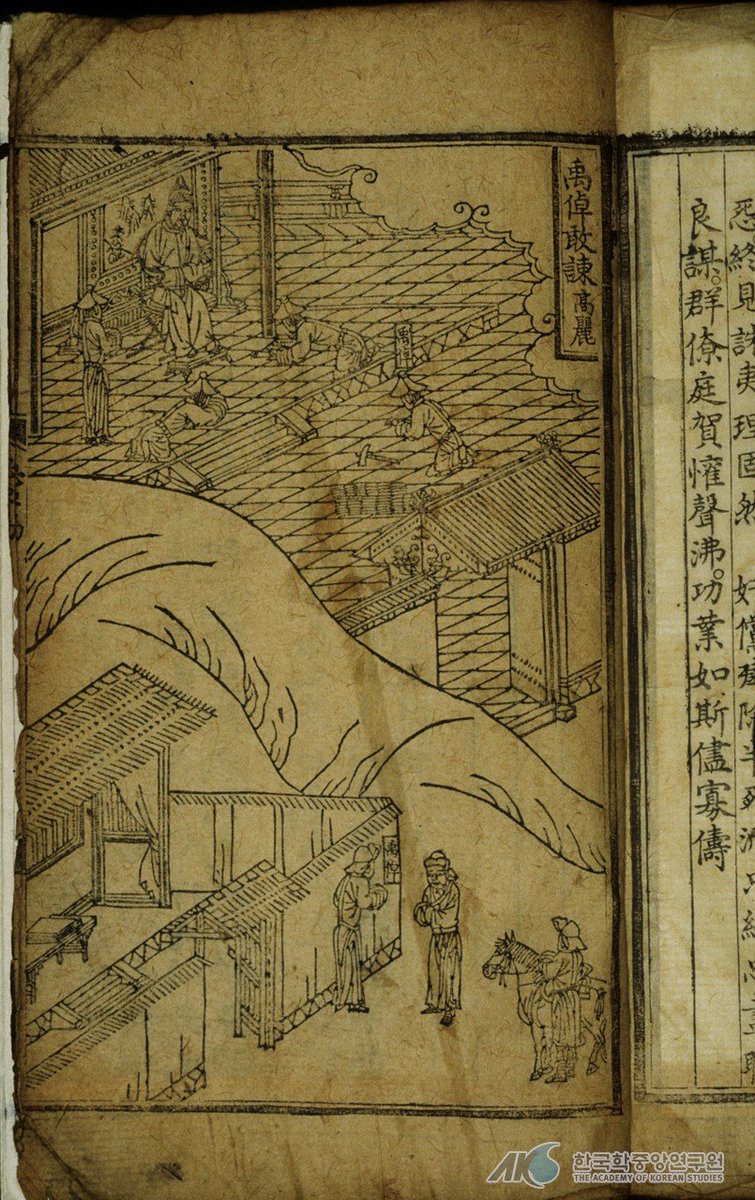 終見誅夷理固然
良謀。群僚庭賀懽聲沸。功業如斯儘寡儔
禹倬敢諫 高麗
禹倬
禹倬
AKS 한국학중앙연구원
THE ACADEMY OF KOREAN STUDIES